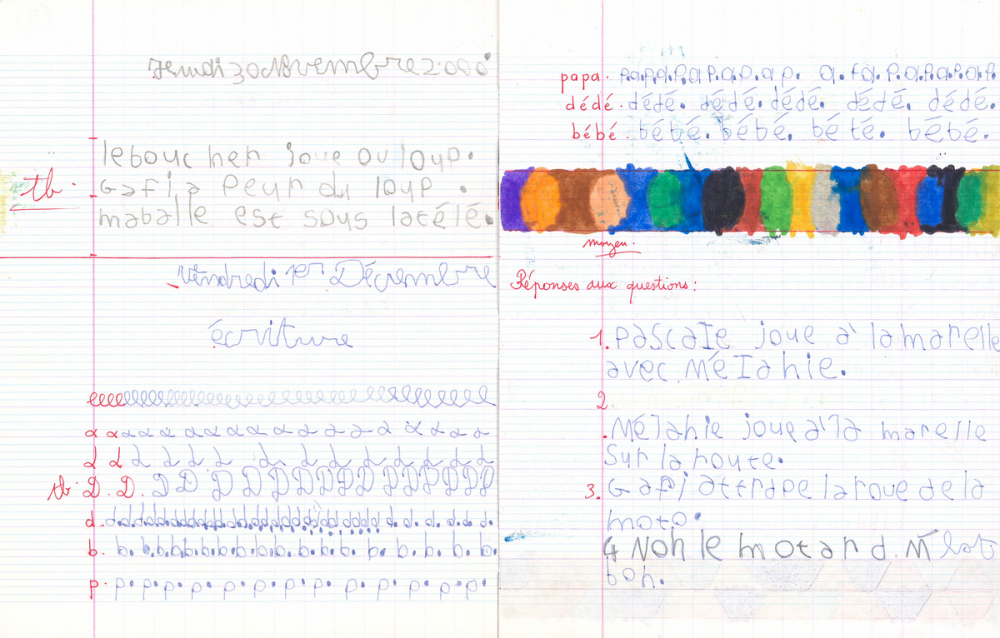 Jeudi 30 Novembre 2000
le boucher joue ou loup.
tb.
Gafi a peur du loup.
ma balle est sous la télé.
Vendredi 1er Décrembre
écriture
eeee
α α α α α α α α α α α α α α α α α α
d d d d d d d d d d d d
tb. D. D. D D D D D D D D D D D D D D D
d.
b. b. b. b. b. b. b. b. b. b. b. b. b. b. b.
p. p. p. p. p. p. p. p. p. p. p. p. p. p. p. p.
papa. papa.
dédé. dédé. dédé. dédé. dédé. dédé.
bébé. bébé. bébé. bé té. bébé.
moyen.
Réponses aux questions:
1. Pascale joue à la marelle
avec Mélanie.
2.
.Mélanie joue à la marelle
Sur la route.
3. Gafi attrape la roue de la
moto.
4 Non le motard
bon.